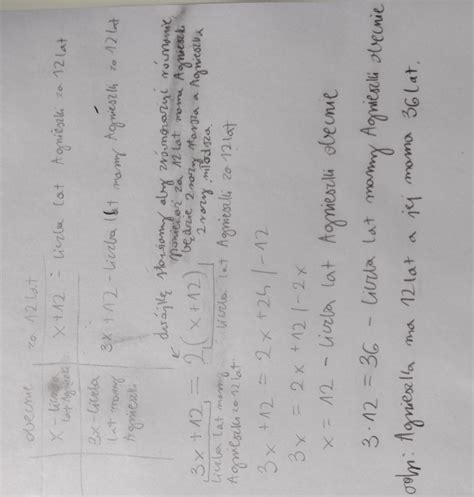 obecnie
za 12 lat
x - liczba
lat Agnieszki
x+12 - liczba lat Agnieszki za 12 lat
3x - liczba
lat mamy
Agnieszki
3x+12 - liczba lat mamy Agnieszki za 12 lat
dwójkę stawiamy aby zrównoważyć równanie,
ponieważ za 12 lat mama Agnieszki
będzie 2 razy starsza a Agnieszka
2 razy młodsza.
3x+12 = 2(x+12)
liczba lat mamy
Agnieszki za 12 lat.
liczba lat Agnieszki za 12 lat
3x+12 = 2x+24 |-12
3x = 2x+12 |-2x
x = 12 - liczba lat Agnieszki obecnie
3·12 = 36 - liczba lat mamy Agnieszki obecnie
odp: Agnieszka ma 12 lat a jej mama 36 lat.